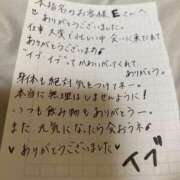 本指名のお客様 Eさんへ
ありがとうございました♡
仕事大変で忙しい中 会いに来てくれて
ありがとうございます♡
"イブイブ"って かわいがってくれて、
ありがとう。
身体も絶対気をつけてネー
本当に無理はしませんように!
いつも飲み物もありがとうー
また元気になったら会おうネ
♡ありがとうございました♡
イブ